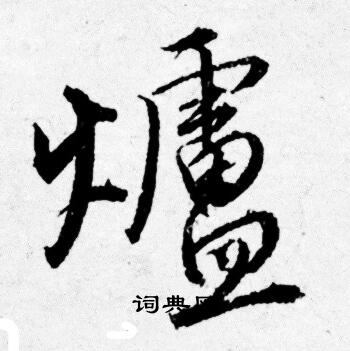 爐
词典网